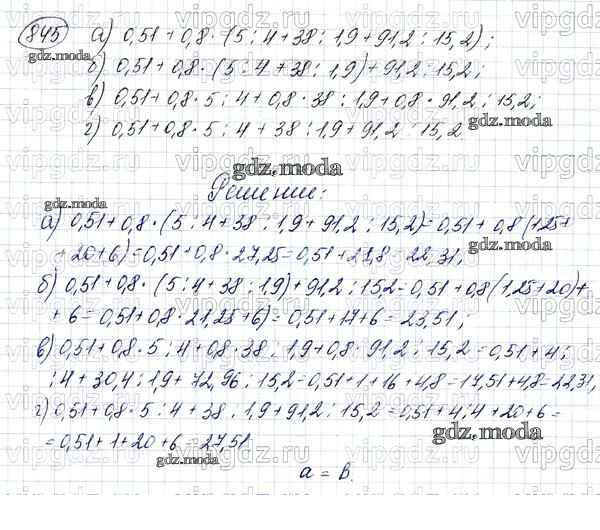 845 а) 0,51 + 0,8 · (5 : 4 + 38 : 1,9 + 91,2 : 15,2) ;
gdz.moda
б) 0,51 + 0,8 · (5 : 4 + 38 : 1,9) + 91,2 : 15,2 ;
в) 0,51 + 0,8 · 5 : 4 + 0,8 · 38 : 1,9 + 0,8 · 91,2 : 15,2 ;
gdz.moda
г) 0,51 + 0,8 · 5 : 4 + 38 : 1,9 + 91,2 : 15,2
gdz.moda
Решение:
gdz.moda
а) 0,51 + 0,8 · (5 : 4 + 38 : 1,9 + 91,2 : 15,2) = 0,51 + 0,8 (1,25 +
gdz.moda
+ 20 + 6) = 0,51 + 0,8 · 27,25 = 0,51 + 21,8 = 22,31 ;
б) 0,51 + 0,8 · (5 : 4 + 38 : 1,9) + 91,2 : 15,2 = 0,51 + 0,8 (1,25 + 20) +
+ 6 = 0,51 + 0,8 · 21,25 + 6) = 0,51 + 17 + 6 = 23,51 ;
в) 0,51 + 0,8 · 5 : 4 + 0,8 · 38 : 1,9 + 0,8 · 91,2 : 15,2 = 0,51 + 4 :
: 4 + 30,4 : 1,9 + 72,96 : 15,2 = 0,51 + 1 + 16 + 4,8 = 17,51 + 4,8 = 22,31,
г) 0,51 + 0,8 · 5 : 4 + 38 : 1,9 + 91,2 : 15,2 = 0,51 + 4 : 4 + 20 + 6 =
gdz.moda
= 0,51 + 1 + 20 + 6 = 27,51
gdz.moda
а = в.